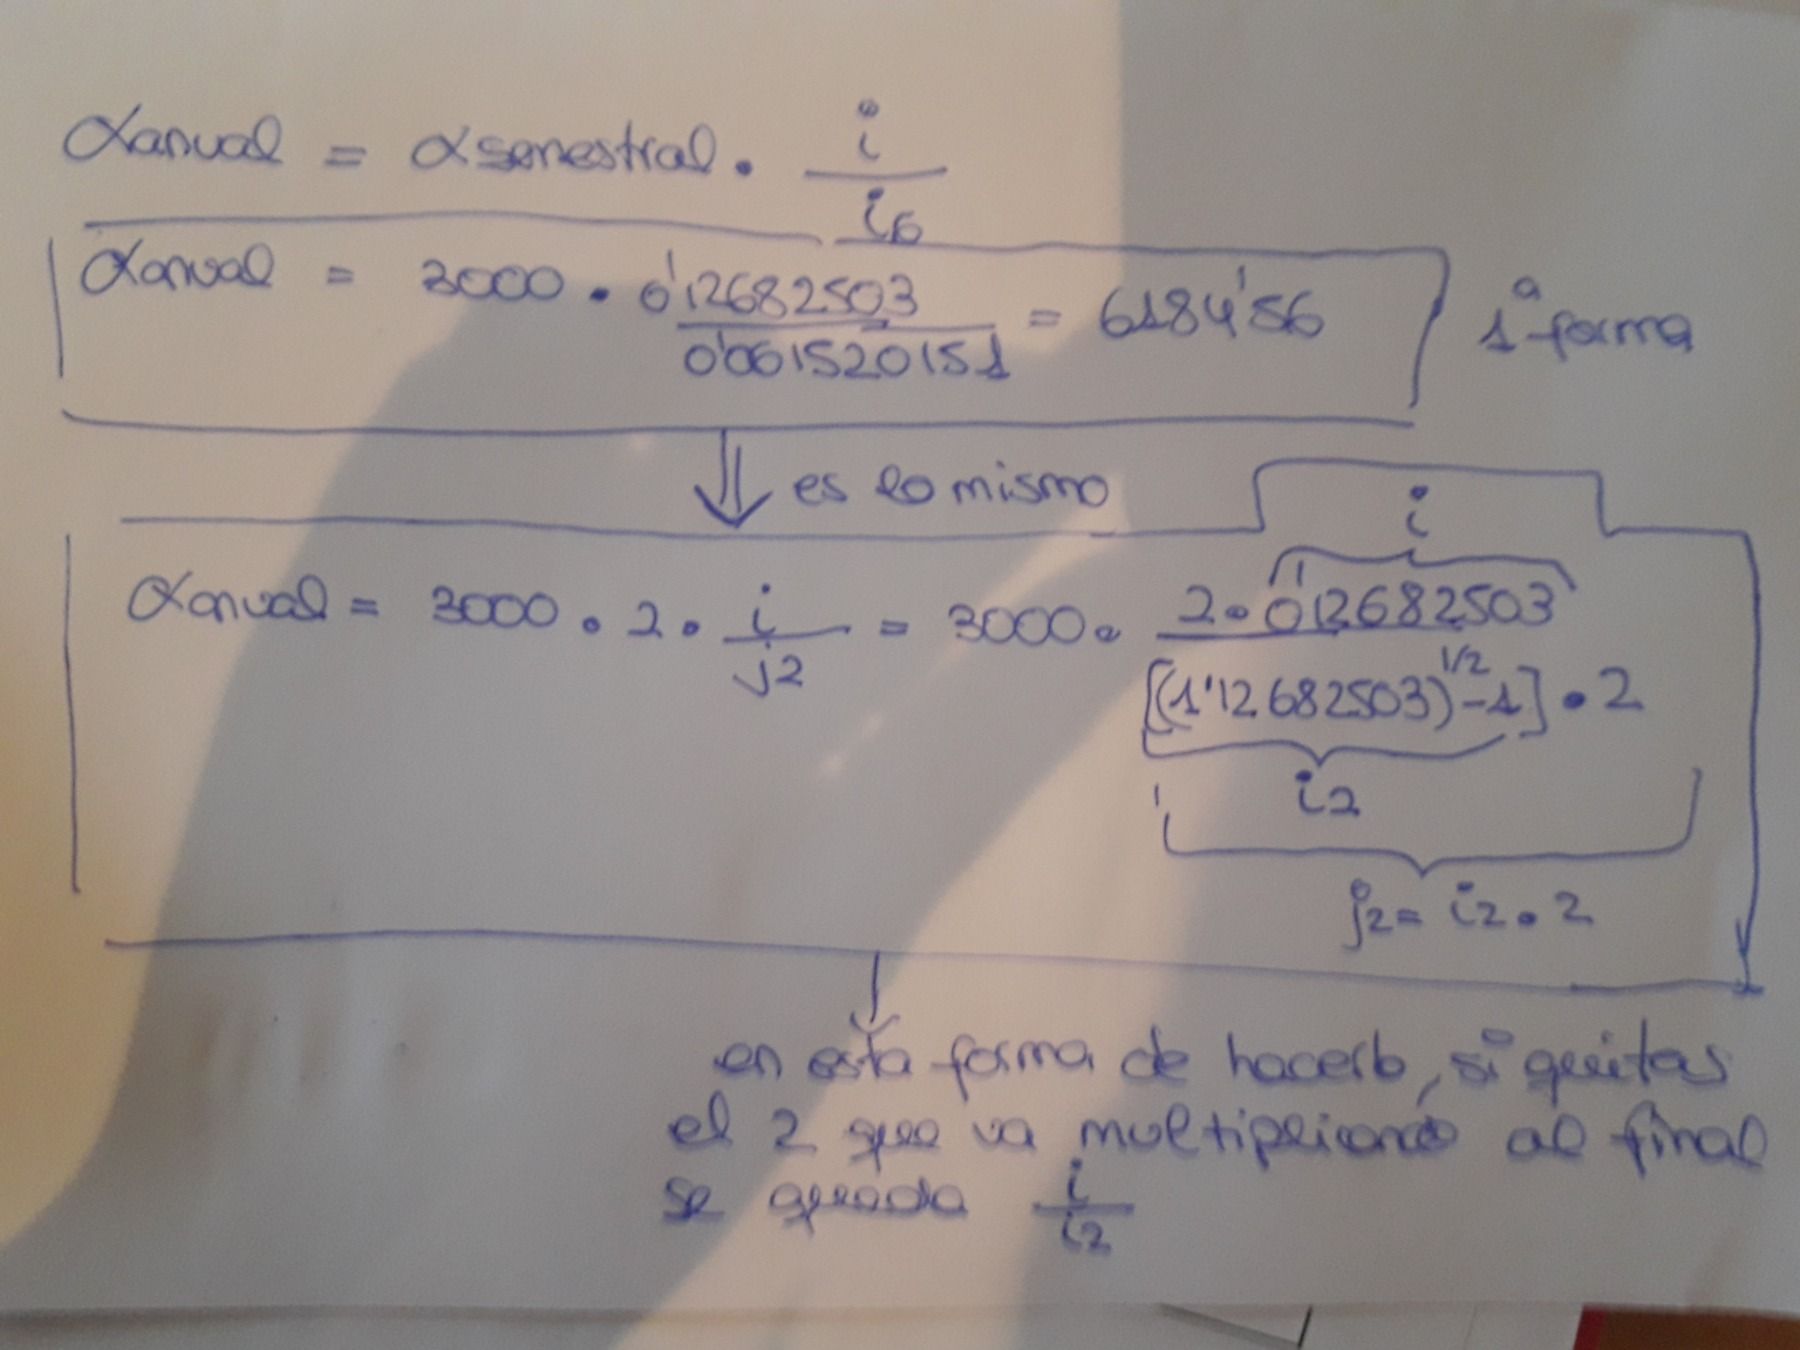 αanual = αsemestral · i / i6
αanual = 3000 · 0'12682503 / 0'061520151 = 6184'56
1ª forma
es lo mismo
i
αanual = 3000 · 2 · i / j2 = 3000 · 2 · 0'12682503 / [(1'12682503)^1/2 - 1] · 2
i2
j2 = i2 · 2
en esta forma de hacerlo, si quitas
el 2 que va multiplicando al final
se queda i / i2